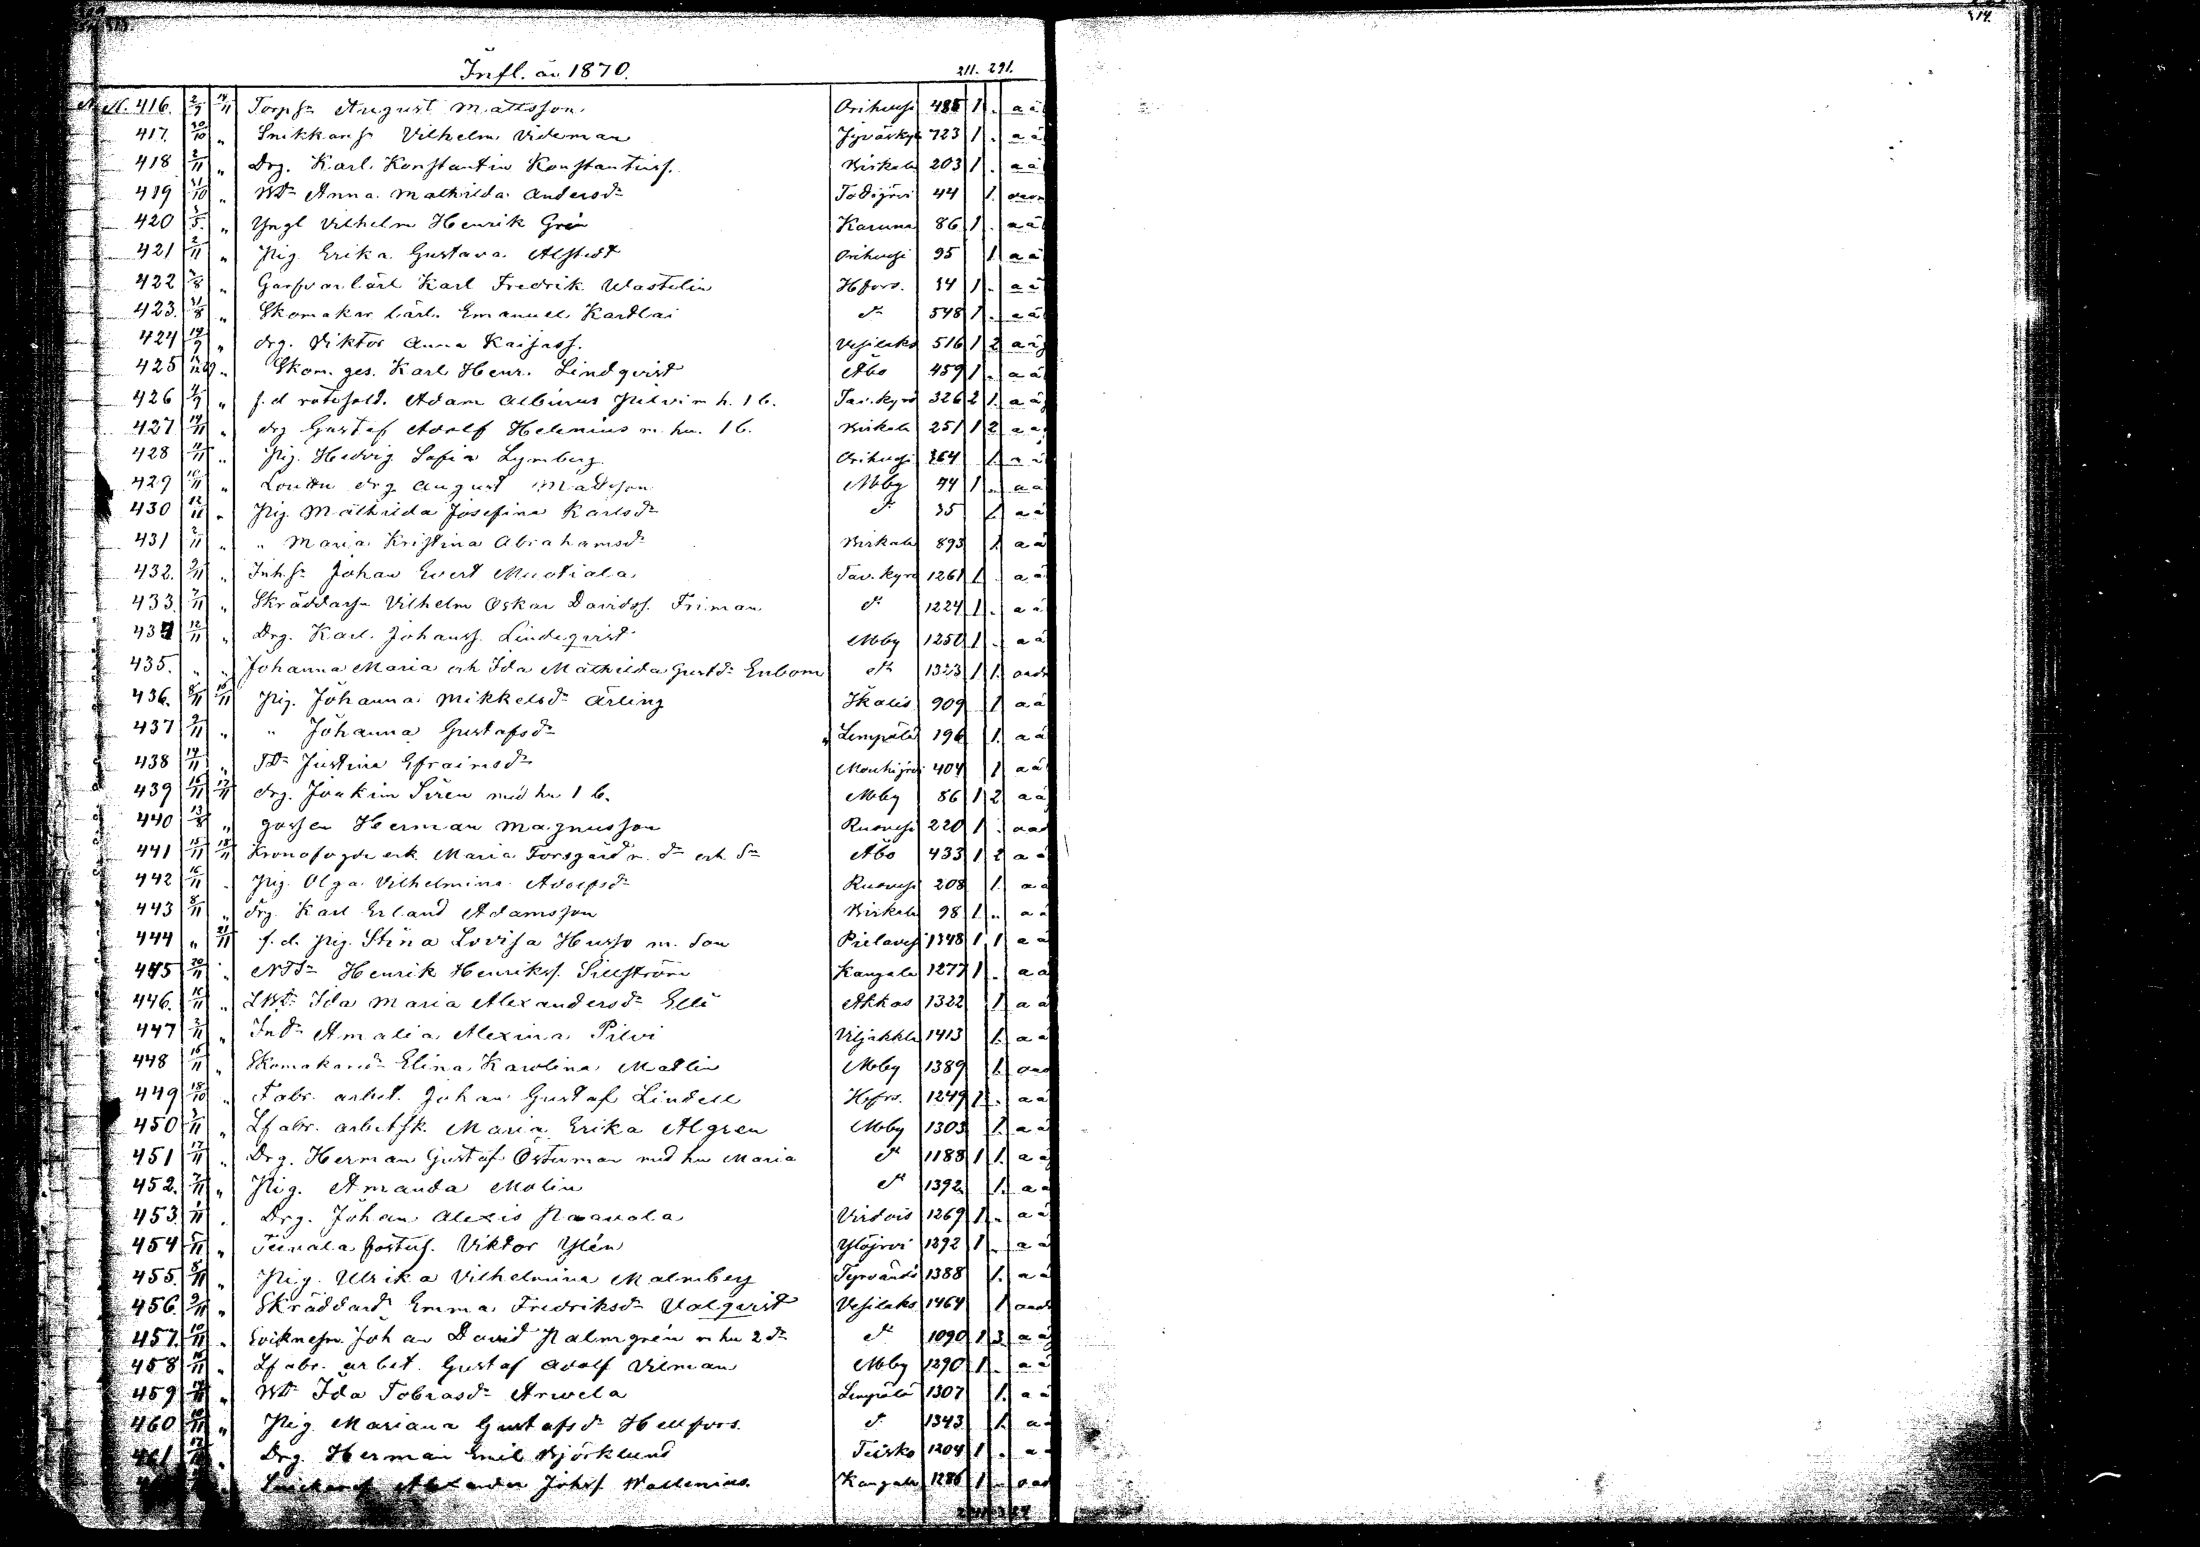 Infl. år 1870. 211. 291.
N. 416. 2/9 14/11 Torps. August Mattsson Orihvesi 485 1 . a ä
417. 20/10 " Snikkars. Vilhelm Videman Jyväskyl 723 1 . a ä
418 2/11 " Drg. Karl Konstantin Konstantins. Birkala 203 1 . a ä
419 31/10 " Anna Mathilda Andersdr 44 1.
420 " Yngl Vilhelm Henrik Grén Karuna 86 1 . a ä
421 2/11 " Pig Erika Gustava Alstedt Orihvesi 95 1 a ä
422 " Garfvar lärl Karl Fredrik Wastelin Hfors. 34 1 . a ä
423. 31/8 " Skomakar lärl. Emanuel Kardlai dr 548 1 . a ä
424 19/9 " drg. Viktor Anna Kaijass. Vesilaks 516 1 2
425 " Skom. ges. Karl Henr. Lindqvist Åbo 459 1 . a ä
426 " f. d rotesold. Adam Albinus Pilvi m h. 1 b. Tav.kyrö 326 2 1. a ä
427 14/11 " drg Gustaf Adolf Helenius m hu. 1 b. Birkala 251 1 2 a ä
428 " Pig. Hedvig Sofia Lymberg Orihvesi 364 1. a ä
429 10/11 " drg August Mattsson Mby 44 1 . a ä
430 12/11 " Pig. Mathilda Josefina Karlsdr dr 35 1. a ä
431 2/11 " " Maria Kristina Abrahamsdr Birkala 893 1. a ä
432. 9/11 " Inh.s. Johan Evert Muotiala Tav. kyrö 1261 1 . a ä
433. 7/11 " Skräddars. Vilhelm Oskar Davidss. Friman dr 1224 1 . a ä
434 12/11 " Drg. Karl Johanss. Lindeqvist Mby 1250 1 . a ä
435. " " Johanna Maria och Ida Mathilda Gustdr Enbom dr 1323 1 1.
436. 8/11 15/11 Pig. Johanna Mikkelsdr Ärling Ikalis 909 1 a ä
437 9/11 " " Johanna Gustafsdr Lempälä 196 1. a ä
438 14/11 " Tdr Justina Efraimsdr Mouhijrvi 404 1 a ä
439 16/11 17/11 drg. Joakim Siren med hu 1 b. Mby 86 1 2 a ä
440 13/8 " gossen Herman Magnusson Ruovesi 220 1 .
441 15/11 18/11 Kronofogde enk. Maria Forsgård m. dr och Sn Åbo 433 1 2 a ä
442 16/11 . Pig. Olga Vilhelmina Adolfsdr Ruovesi 208 1. a ä
443 8/11 " drg. Karl Erland Adamsson Birkala 98 1 . a ä
444 " 21/11 f. d. pig. Stina Lovisa Husso m. Son Pielaves 1348 1 1 a ä
445 20/11 " Henrik Henrikss. Sillström Kangala 1277 1 . a ä
446. 16/11 " Ida Maria Alexandersdr Elli Akkas 1322 1 a ä
447 2/11 " Indr Amalia Alexina Pilvi Viljakkla 1413 1. a ä
448 16/11 " Skomakaredr Elina Karolina Matlin Mby 1389 1.
449 18/10 " Fabr. arbet. Johan Gustaf Lindell Hfrs. 1249 1 . a ä
450 3/11 " Lfabr. arbetsk. Maria Erika Algren Mby 1303 1. a ä
451 17/11 " Drg. Herman Gustaf Österman med hu Maria dr 1188 1 1. a ä
452. 7/11 " Pig. Amanda Molin dr 1392 1. a ä
453. 1/11 . Drg. Johan Alexis Paavola Virdois 1269 1 . a ä
454 5/11 " Viktor Ylén Ylöjrvi 1292 1 . a ä
455. 8/11 " Pig. Ulrika Vilhelmina Malmberg Tyrvändö 1388 1. a ä
456. 9/11 " Skräddaredr Emma Fredriksdr Valqvist Vesilaks 1464 1
457. 10/11 " Johan David Palmgrén m hu 2 dr dr 1090 1 3. a ä
458 16/11 " Lfabr. arbet. Gustaf Adolf Vilman Mby 1290 1 . a ä
459 " Ida Tobiasdr Arwela Lempälä 1307 1. a ä
460 10/11 " Pig. Mariana Gustafsdr Hellfors. dr 1343 1. a ä
461 " Drg. Herman Emil Björklund Teisko 1204 1 . a ä
Alexander Johss. Wallenius. Kangala 1286 1 .